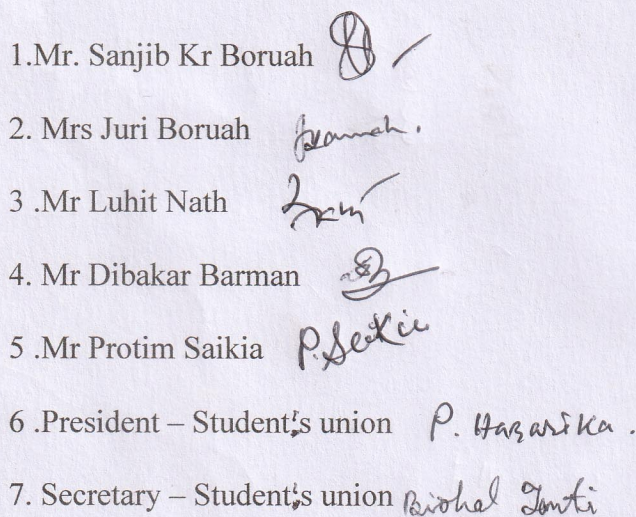 1.Mr. Sanjib Kr Boruah
2. Mrs Juri Boruah
3 .Mr Luhit Nath
4. Mr Dibakar Barman
5 .Mr Protim Saikia P. Saikia
6 .President – Student;s union P. Hazarika.
7. Secretary – Student;s union Tanti